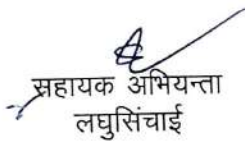 सहायक अभियन्ता
लघुसिंचाई